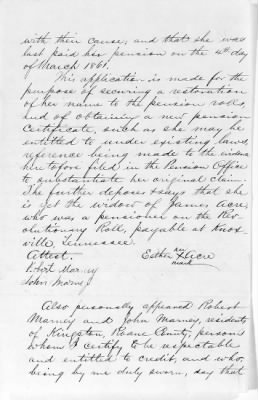 with their cause, and that she was
last paid her pension on the 4th day
of March 1861.
This application is made for the
purpose of securing a restoration
of her name to the pension rolls,
and of obtaining a new pension
certificate, such as she may be
entitled to under existing laws,
reference being made to the evidence
heretofore filed in the Pension Office
to substantiate her original claim.
She further deposes & says that she
is yet the widow of James Acre,
who was a pensioner on the Rev-
olutionary Roll, payable at Knox-
ville, Tennessee.
Attest. Esther her X mark Acre
Robert Marney
John Marney
Also personally appeared Robert
Marney and John Marney, residents
of Kingston, Roane County, persons
whom I certify to be respectable
and entitled to credit, and who,
being by me duly sworn, say that